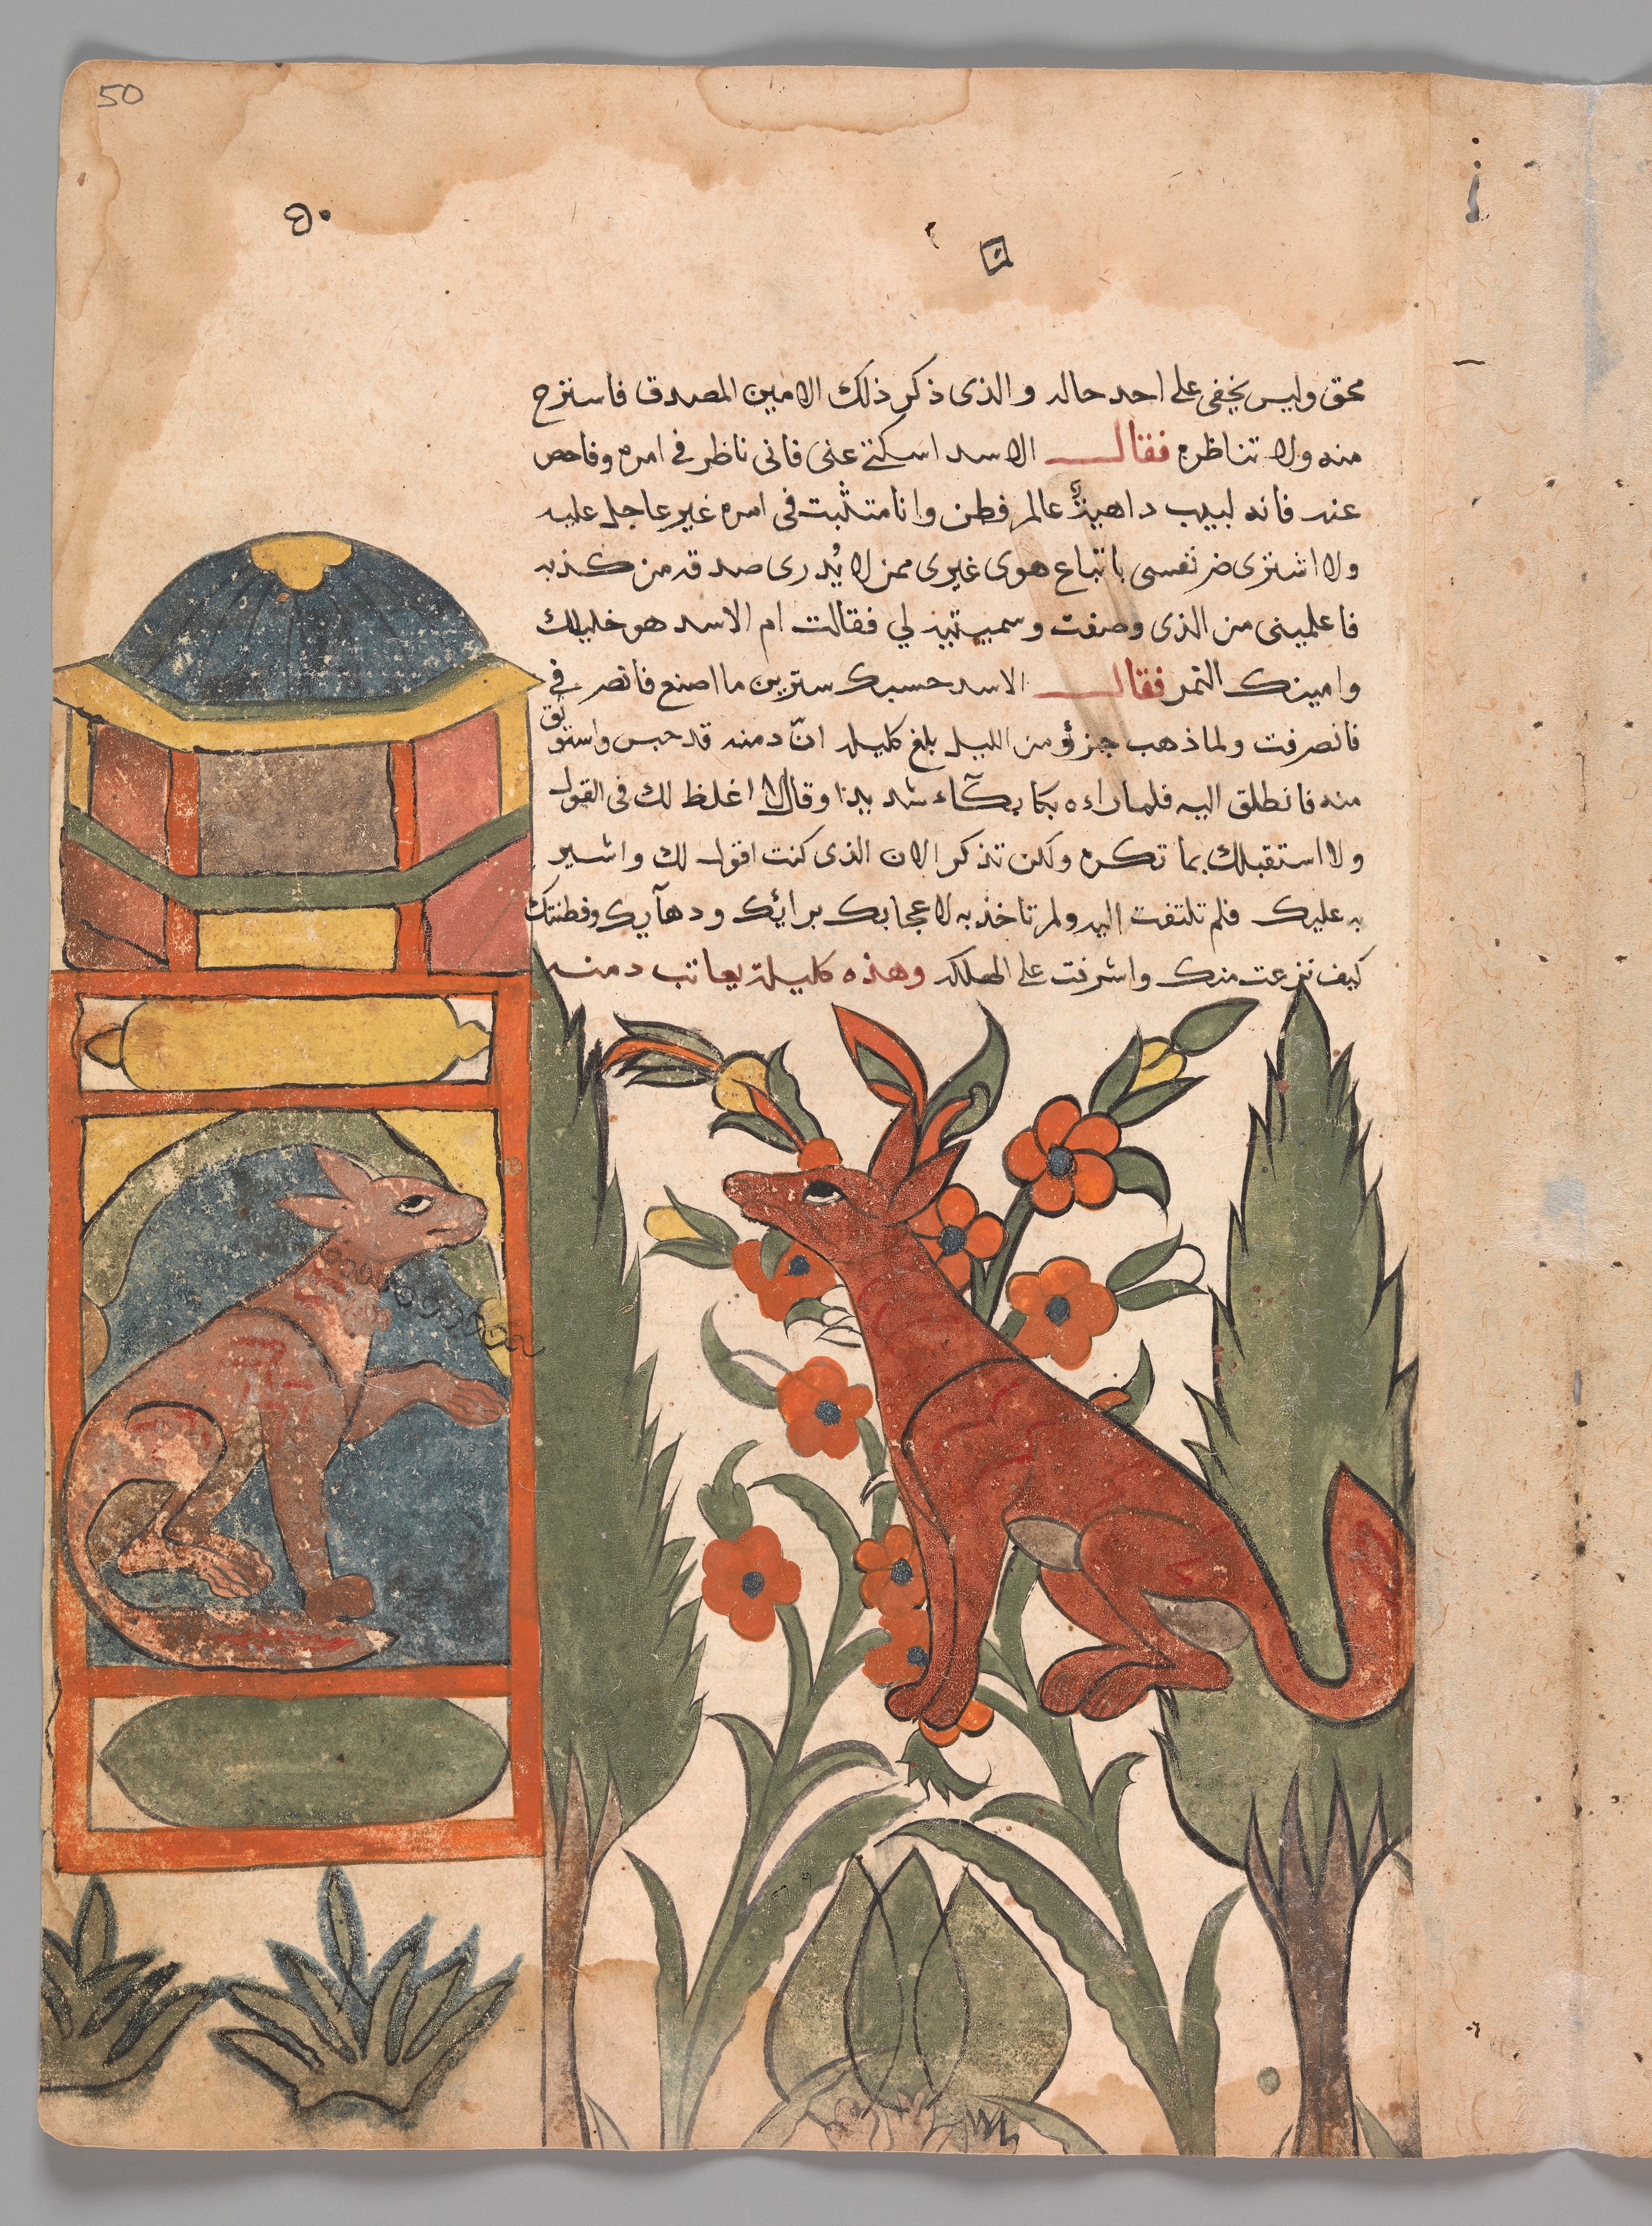 50
٥٠
محق وليس يخفى على احد حاله والذى ذكر ذلك الامين المصدق فاستزح
منه ولا تناظره فقال الاسد اسكتى عنى فانى ناظر فى امره وفاحص
عنه فانه لبيب داهية عالم فطن وانا متثبت فى امره غير عاجل عليه
ولا اشترى ضر نفسى باتباع هوى غيرى ممن لا يُدرى صدقه من كذبه
فاعلمينى من الذى وصفت وسميتيه لي فقالت ام الاسد هو خليلك
وامينك النمر فقال الاسد حسبك سترين ما اصنع فانصرفي
فانصرفت ولما ذهب جزؤ من الليل بلغ كليله انّ دمنه قد حبس واستوثق
منه فانطلق اليه فلما راءه بكا بكآء شديدا وقال لا اغلظ لك فى القول
ولا استقبلك بما تكره ولكن تذكر الان الذى كنت اقول لك واشير
به عليك فلم تلتفت اليه ولم تاخذ به لاعجابك برائك ودهآيك وفطنتك
كيف نزعت منك واشرفت على الهلكه وهذه كليلة يعاتب دمنه